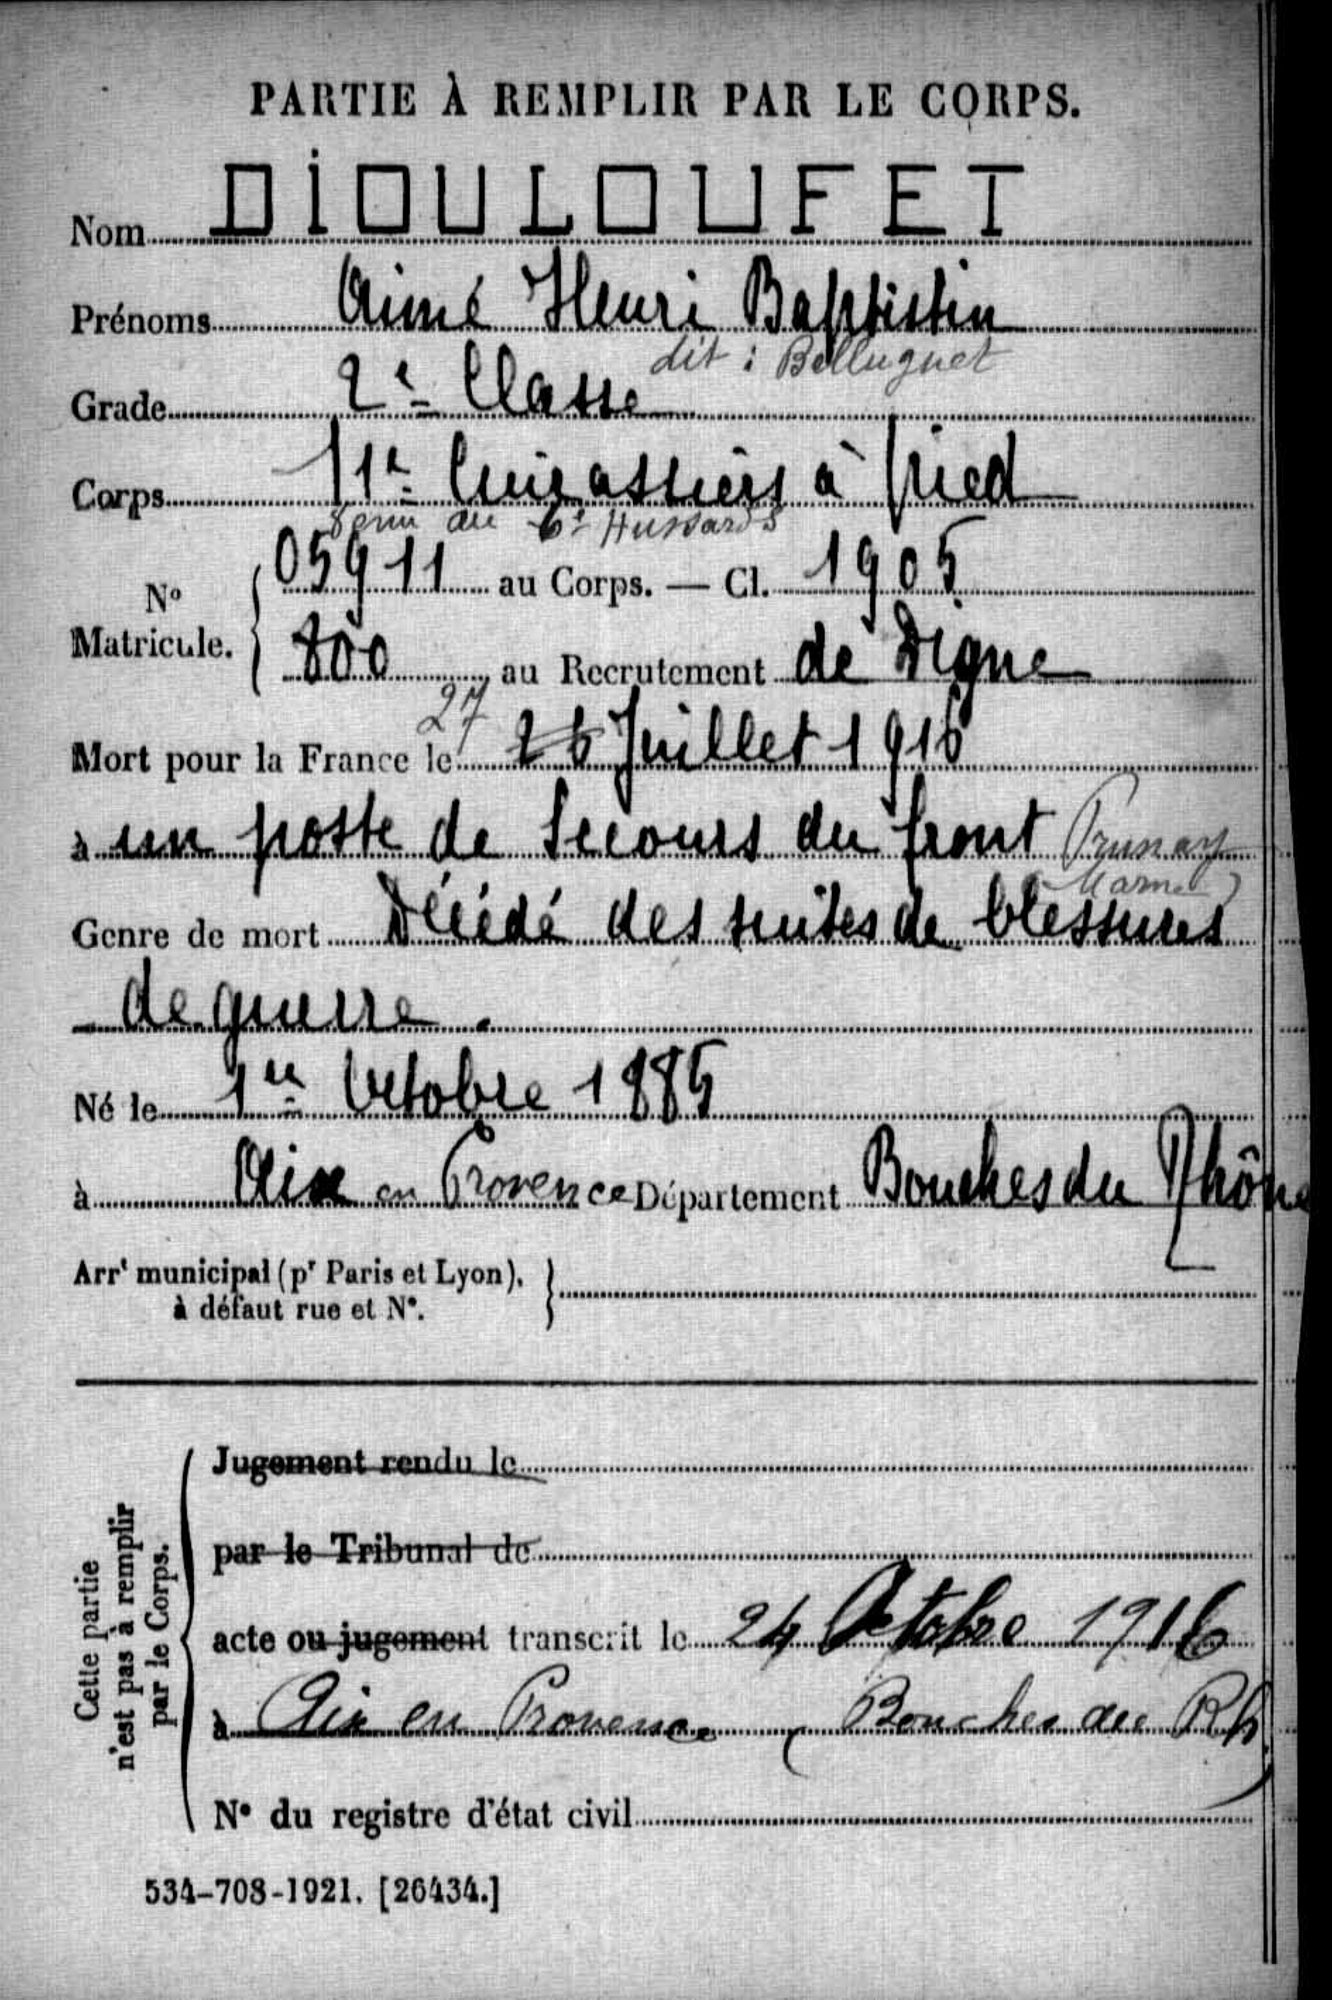 PARTIE À REMPLIR PAR LE CORPS.
Nom DIOULOUFET
Prénoms Aimé Henri Baptistin
dit : Belluguet
Grade 2e Classe
Corps 11e Cuirassiers à pied
venu du 6e Hussards
05911 au Corps. — Cl. 1905
No Matricule.
800 au Recrutement de Digne
27
Mort pour la France le 26 Juillet 1916
à un poste de Secours du front Prunay
(Marne)
Genre de mort Décédé des suites de blessures
de guerre.
Né le 1er Octobre 1885
à Aix en Provence Département Bouches du Rhône
Arrt municipal (pr Paris et Lyon),
à défaut rue et No.
Cette partie
n'est pas à remplir
par le Corps.
Jugement rendu le
par le Tribunal de
acte ou jugement transcrit le 24 Octobre 1916
à Aix en Provence (Bouches du Rh)
No du registre d'état civil
534-708-1921. [26434.]